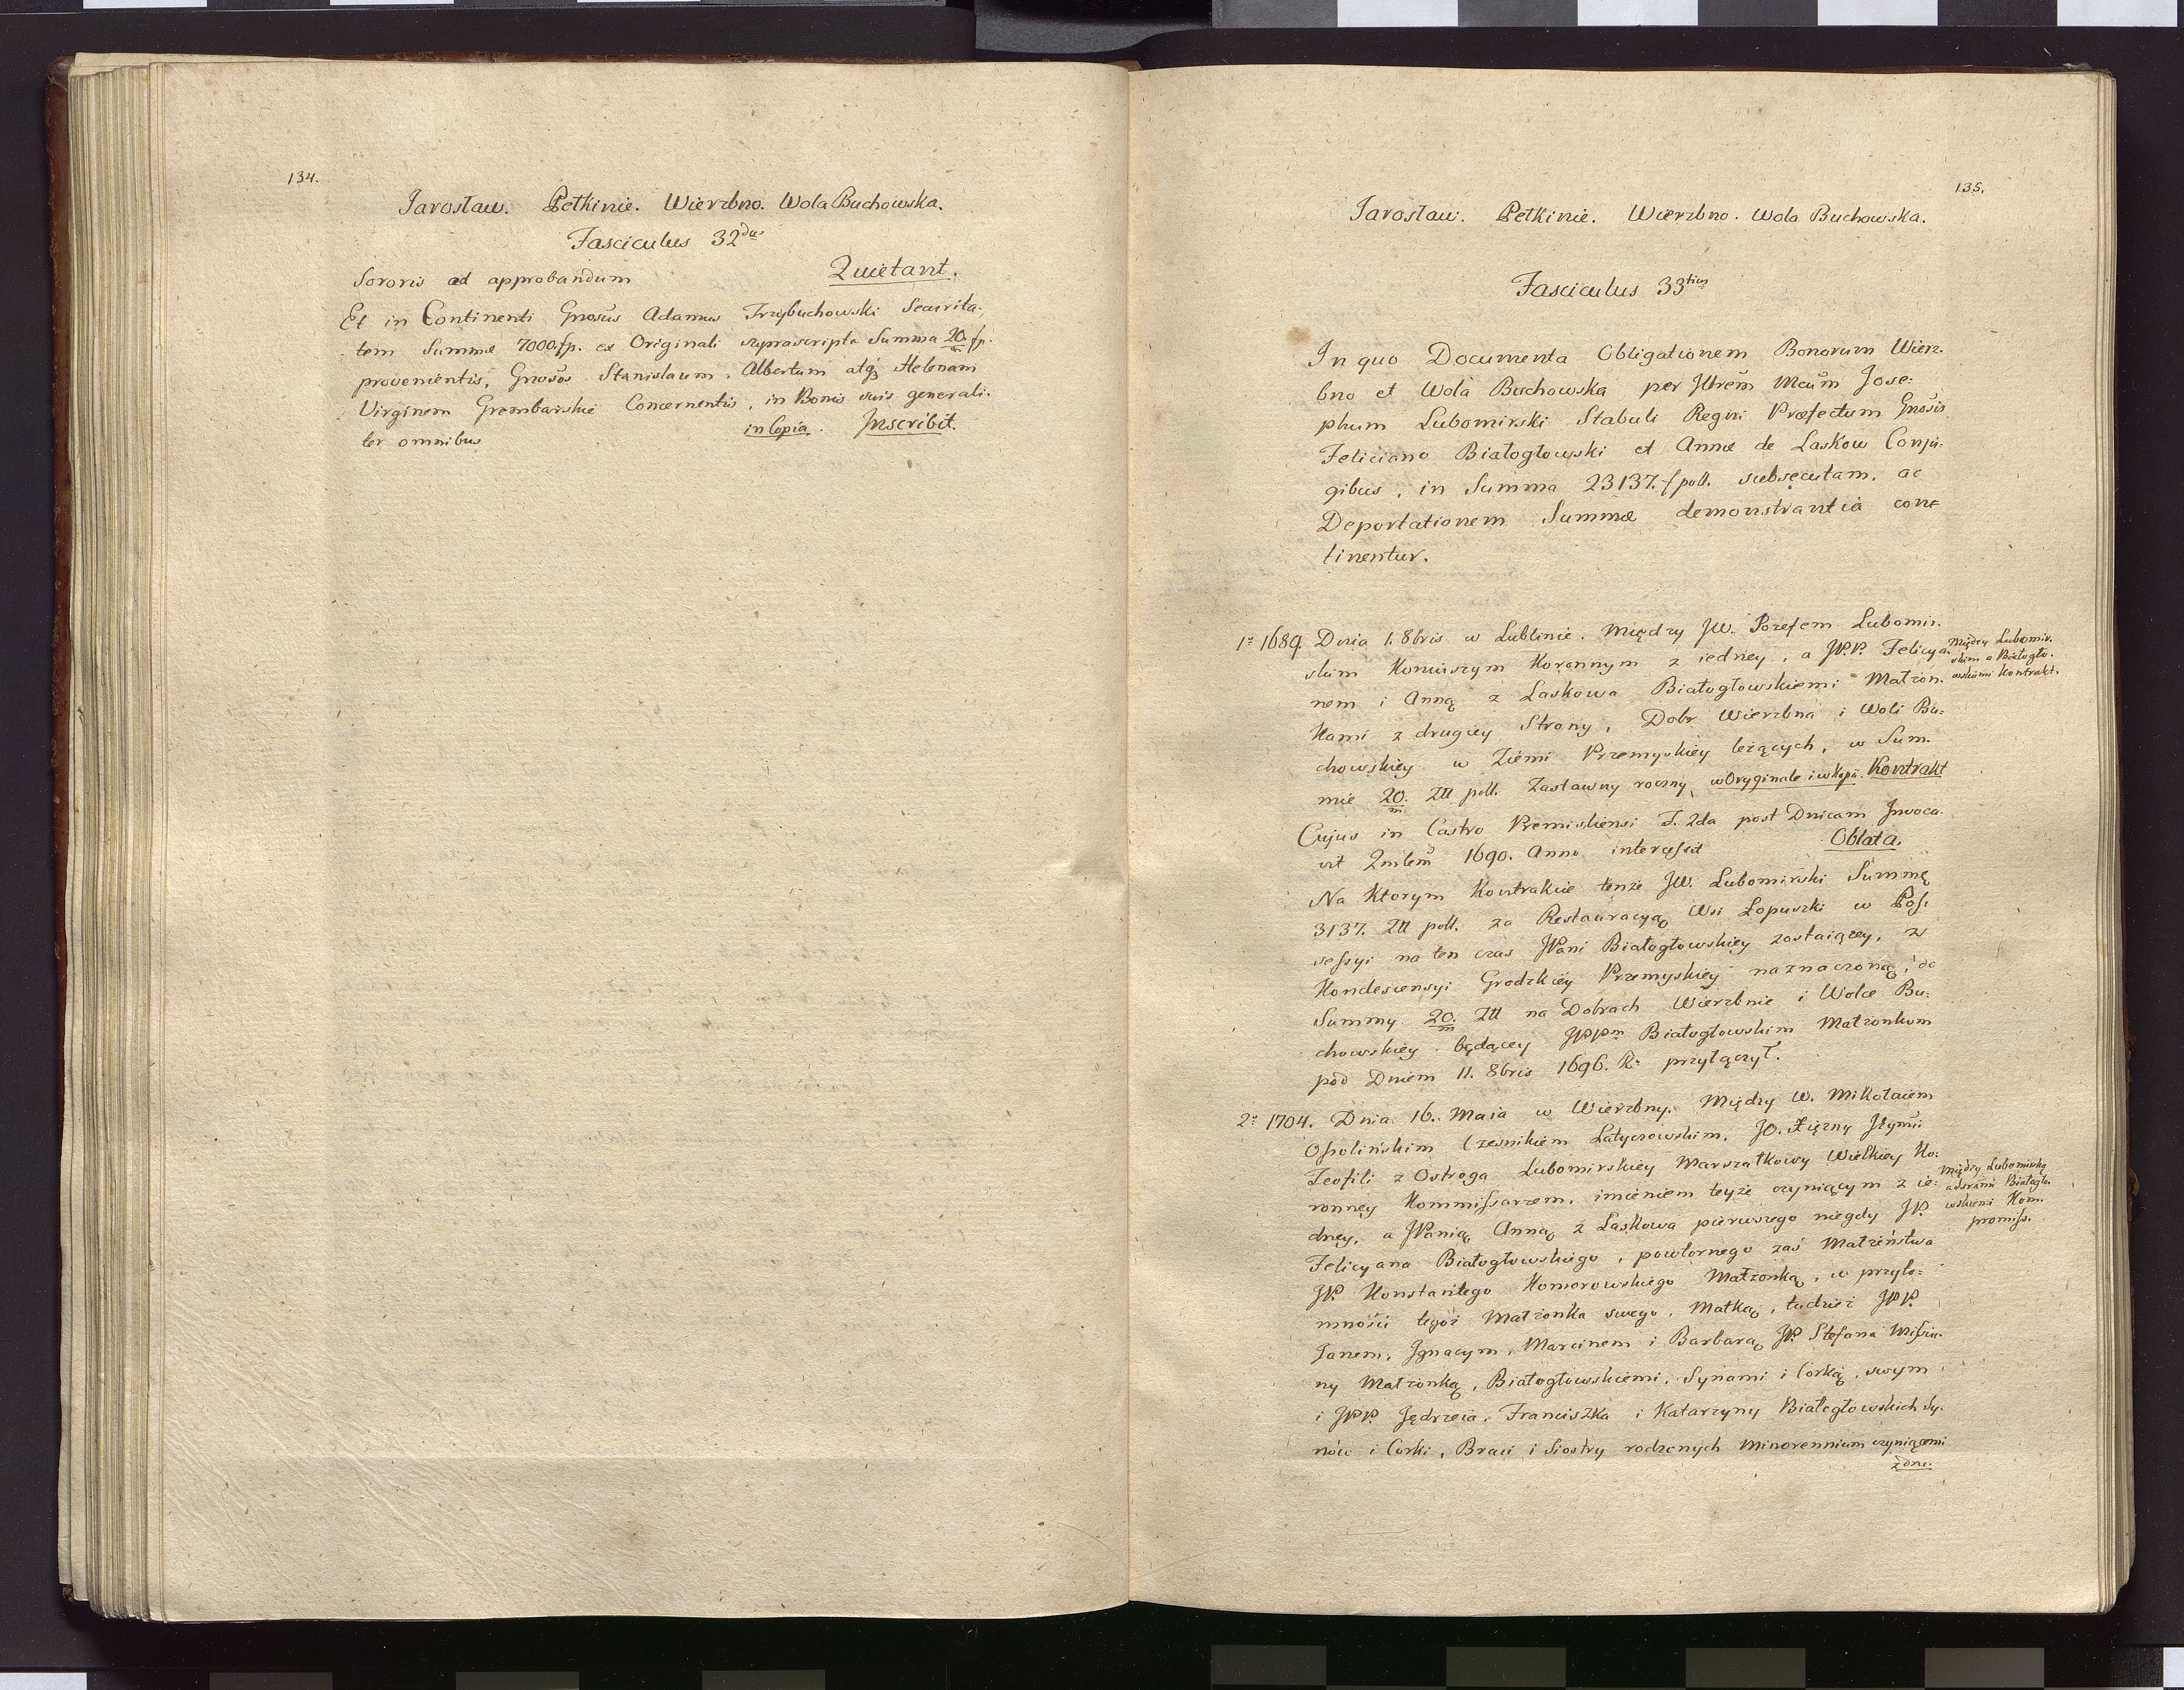 134.
Jarosław. Pełkinie. Wierzbno. Wola Buchowska.
Fasciculus 32dus
Sororis ad approbandum Quietant.
Et in Continenti Gnosus Adamus Trzybuchowski Securita-
tem Summæ 7000. fp. ex Originali supra scripta Summa 20/m fp.
provenientis, Gnosos Stanislaum, Albertum atq Helenam
Virginem Grembarskie Concernentis, in Bonis suis generali-
ter omnibus in Copia. Inscribit.
135.
Jarosław. Pełkinie. Wierzbno. Wola Buchowska.
Fasciculus 33tius
In quo Documenta Obligationem Bonorum Wierz-
bno et Wola Buchowska per Jllrem Mcum Jose-
phum Lubomirski Stabuli Regni Præfectum Gnosis
Feliciano Białogłowski et Annæ de Laskow Conju-
gibus, in Summa 23137. f poll. subsecutam, ac
Deportationem Summæ demonstrantia con-
tinentur.
1º 1689. Dnia 1. 8bris w Lublinie. Między JW. Jozefem Lubomir-
skim Koniuszym Koronnym z iedney, a JP.P. Felicya-
nem i Anną z Laskowa Białogłowskiemi Małżon-
kami z drugiey Strony, Dobr Wierzbna i Woli Bu-
chowskiey w Ziemi Przemyskiey leżących, w Sum-
mie 20/m Złł poll. Zastawny roczny, w Oryginale i w Kopii. Kontrakt
Między Lubomir-
skim a Białogło-
wskiemi Kontrakt.
Cujus in Castro Premisliensi F. 2da post Dnicam Invoca-
vit Qmlem 1690. Anno intercessit Oblata.
Na Ktorym Kontrakcie tenże JW. Lubomirski Summę
3137. Złł poll. za Restauracyą Wsi Łopuszki w Pos-
sessyi na ten czas JPani Białogłowskiey zostaiącey, z
Kondescensyi Grodzkiey Przemyskiey naznaczoną, do
Summy 20/m Złł na Dobrach Wierzbnie i Wolce Bu-
chowskiey będącey JPPm Białogłowskim Małżonkom
pod Dniem 11. 8bris 1696. R: przyłączył.
2º 1704. Dnia 16. Maia w Wierzbny. Między W. Mikołaiem
Opolińskim Czesnikiem Latyczowskim, JO. Xiężny Jłymu
Teofili z Ostroga Lubomirskiey Marszałkowy Wielkiey Ko-
ronney Kommissarzem, imieniem teyże czyniącym z ie-
dney, a JPanią Anną z Laskowa pierwszego niegdy JP.
Felicyana Białogłowskiego, powtornego zaś Małżeństwa
JP. Konstantego Komorowskiego Małżonką, w przyto-
mności tegoż Małżonka swego, Matką, tudzież JPP.
Janem, Jgnacym, Marcinem i Barbarą JP. Stefana Misiu-
ny Małżonką, Białogłowskiemi, Synami i Corką swym
i JPP. Jędrzeia, Franciszka i Katarzyny Białogłowskich Sy-
nów i Corki, Braci i Siostry rodzonych Minorennium czyniącemi
Między Lubomirską
a Białogło-
wskiemi Kom-
promiss.
z dru-